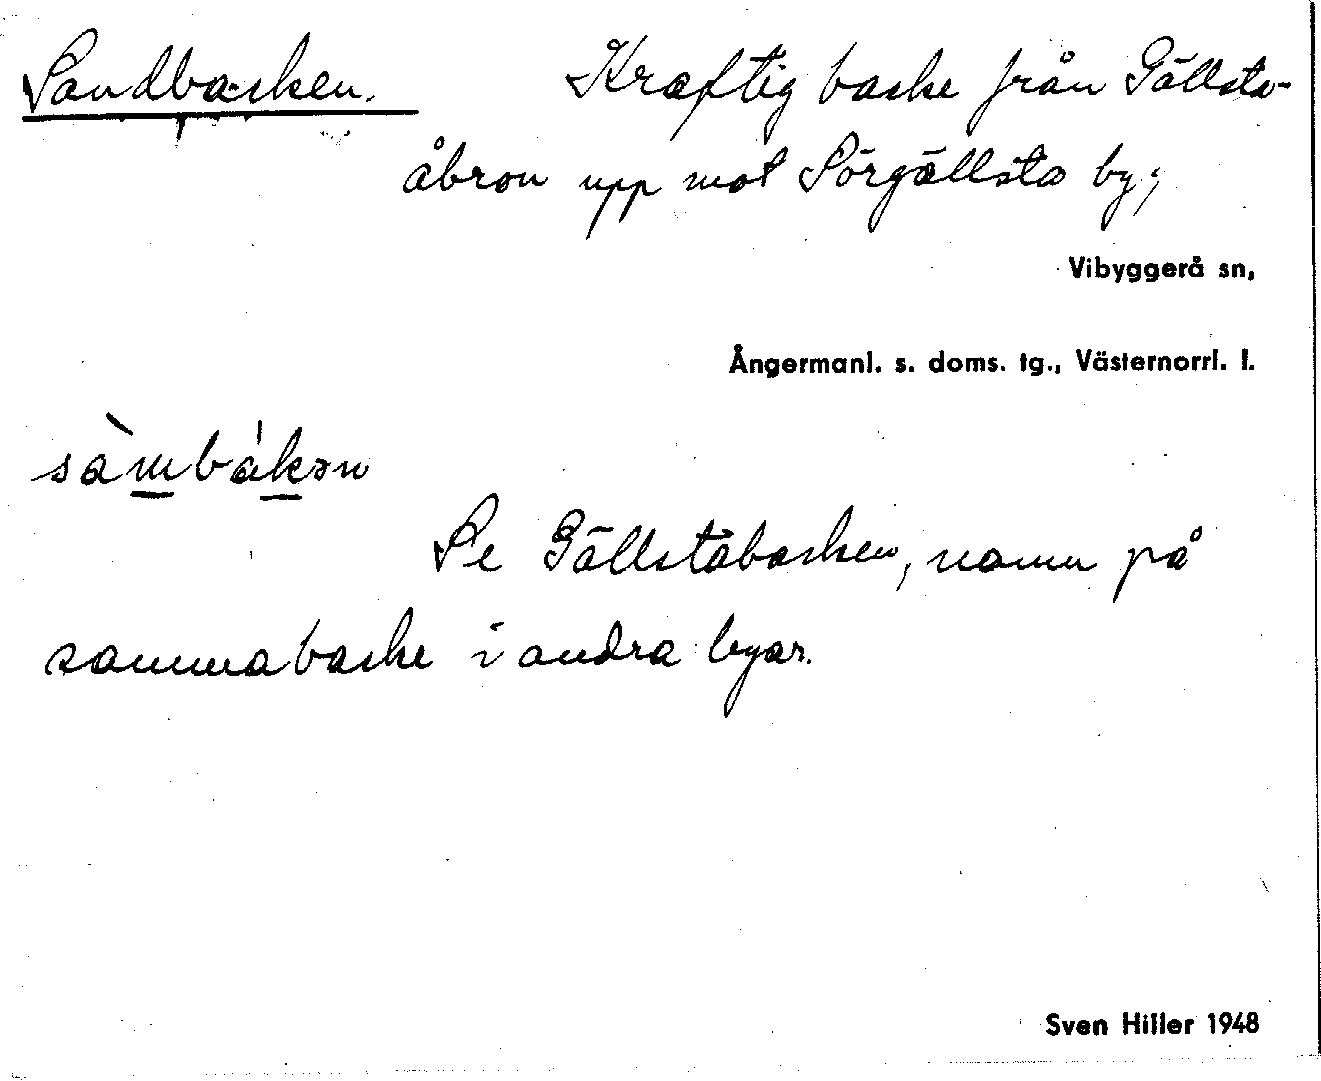 Sandbacken. Kraftig backe från Gällsta-
åbron upp mot Sörgällsta by;
Vibyggerå sn,
Ångermanl. s. doms. tg., Västernorrl. l.
sàmbákən
Se Gällstabacken, namn på
samma backe i andra byar.
Sven Hiller 1948